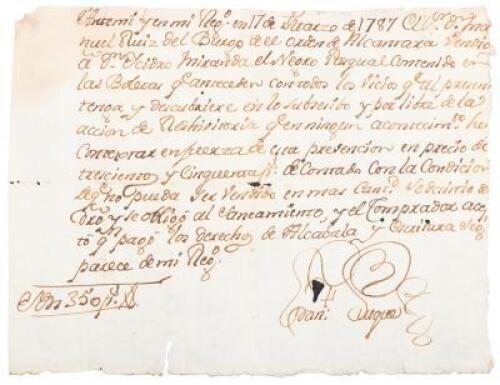 Ante mi y en mi Reg.º en 17 de Marzo de 1787 el S.r Dn. Ma
nuel Ruiz del Burgo de el orden de Alcantara Vendio
a Dn. Isidro Miranda el Negro Pasqual Contenido en
las Boletas q anteceden con todos los Vicios q al presente
tenga y descubriere en lo subsesibo y por libre de la
accion de Rehibitoria q en ningun acontecim.to ha
de en fuerza de esta prevencion en precio de
trescientos y Cinquenta p.s de Contado con la Condicion
de q no pueda Ser Vendido en mas Can.d Vedimio de
otro y se obligó al Saneamiento, y el Comprador acep
tó q pagó los derechos de Alcabala y Escritura Seg.n
parece de mi Reg.º
Son 350 p.s
Duque